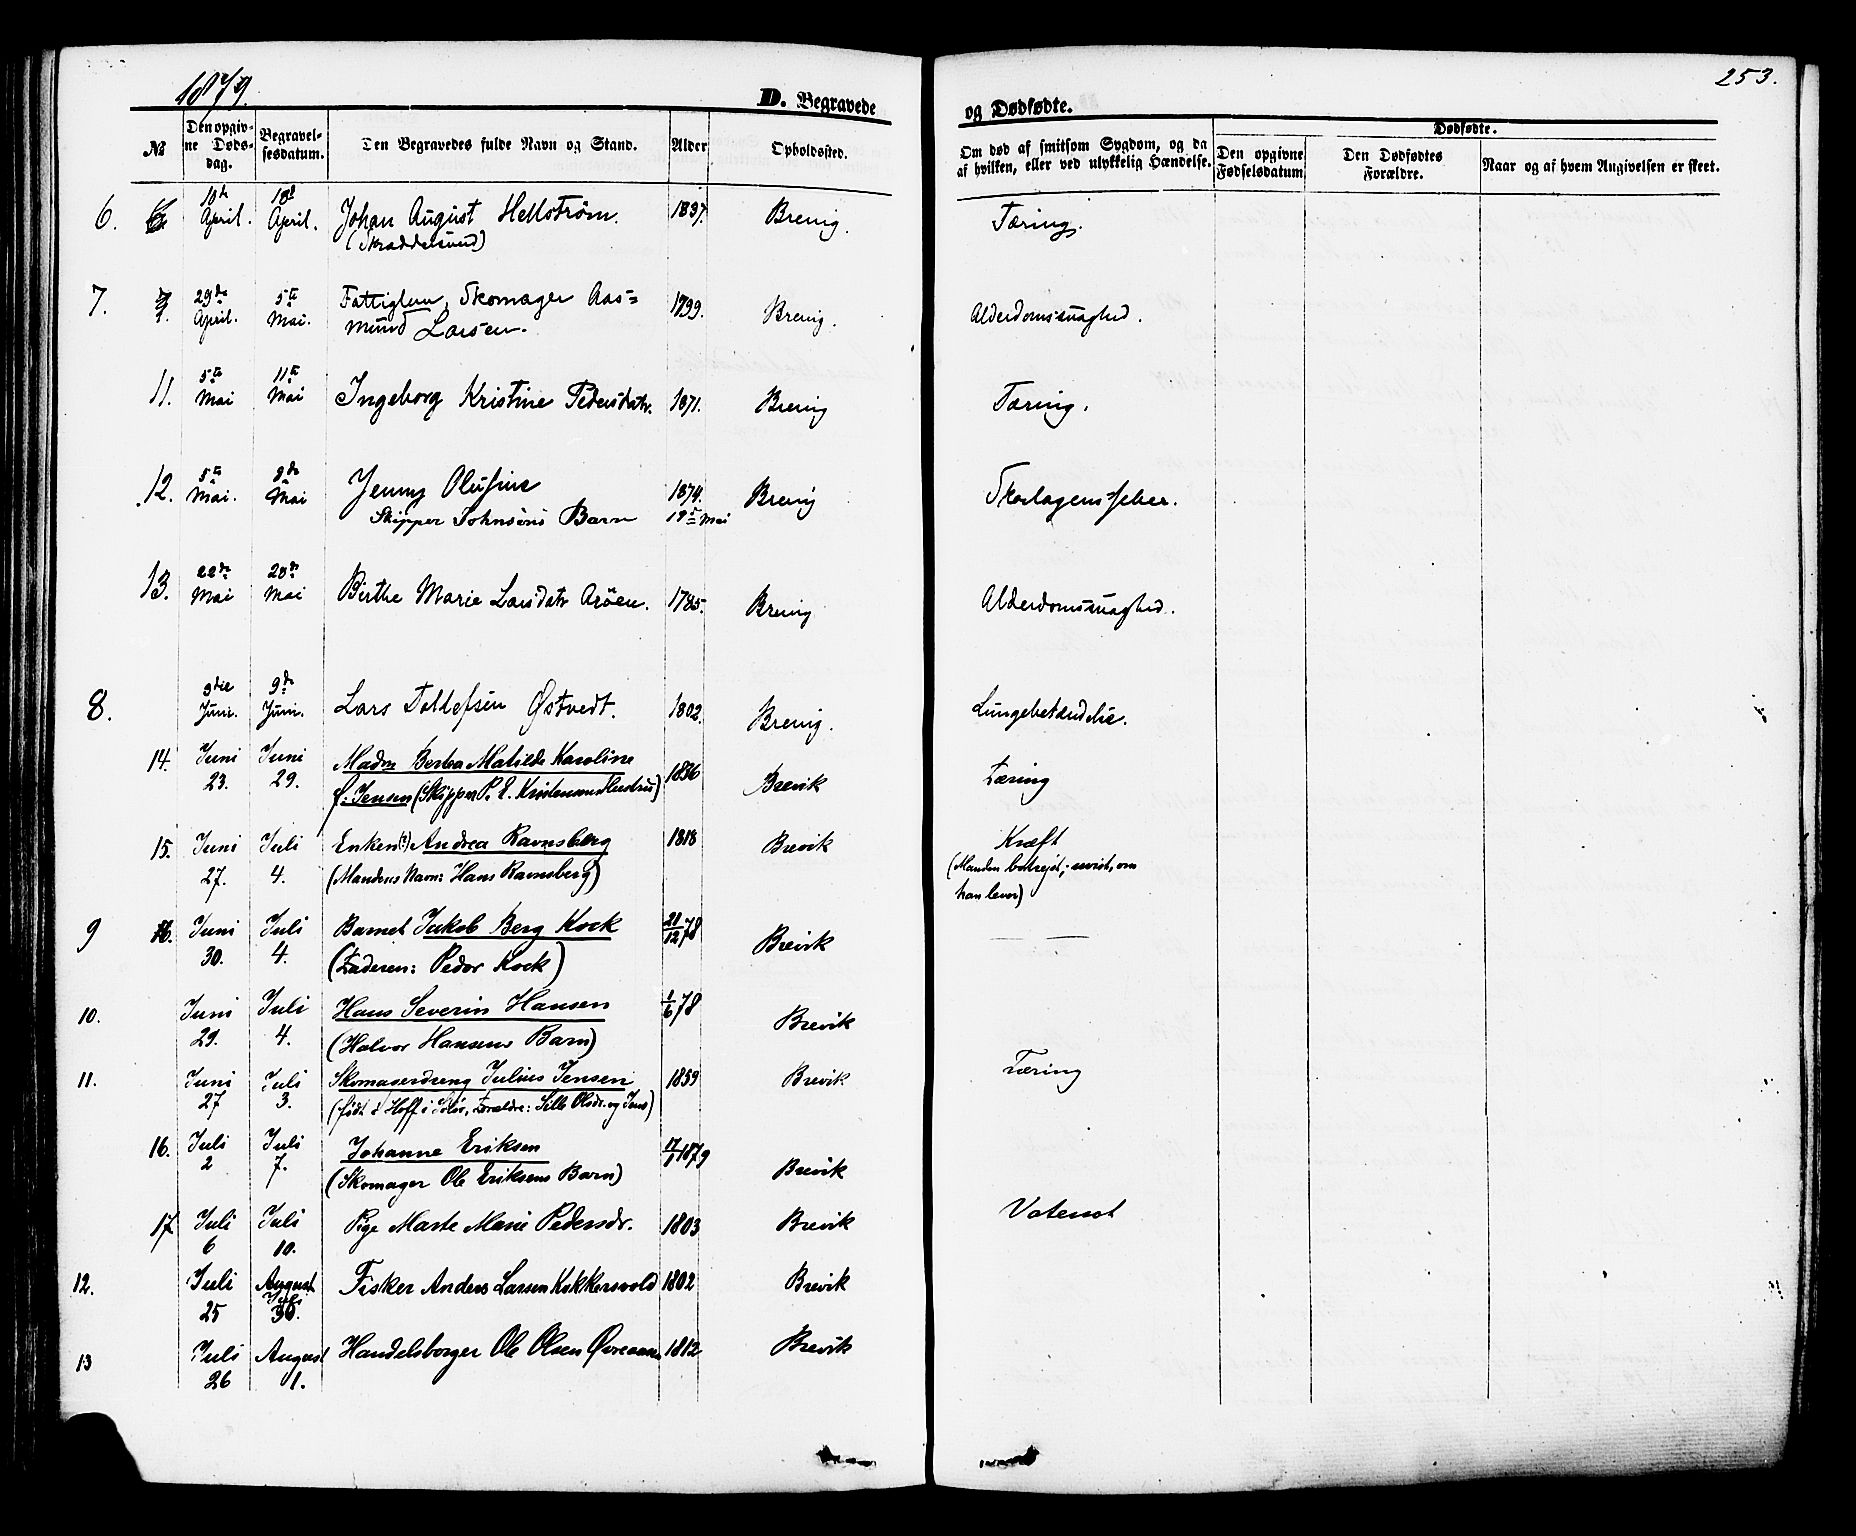 1879.
D. Begravede
og Dødfødte.
253.
№
Den opgivne Dødsdag.
Begravelsesdatum.
Den Begravedes fulde Navn og Stand.
Alder
Opholdssted.
Om død af smitsom Sygdom, og da af hvilken, eller ved ulykkelig Hændelse.
Dødfødte.
Den opgivne Fødselsdatum
Den Dødfødtes Forældre.
Naar og af hvem Angivelsen er skeet.
6. April. 18d April. Johan August Hellstrøm. 1837. Brevig. Tæring.
7. 29de April. 5te Mai. Fattiglem, Skomager Aas=
mund Larsen. 1799. Brevig. Alderdomssvaghed.
11. 5te Mai 11te Mai Ingeborg Kristine Pedersdatr. 1871. Brevig Tæring.
12. 5te Mai. 9de Mai Jenny Olufine 1874. Brevig Skarlagensfeber.
Skipper Johnsens Barn 19de Mai
13. 22de Mai 28de Mai Birthe Marie Larsdatr Arøen. 1785. Brevig Alderdomssvaghed.
8. 3die Juni. 9de Juni. Lars Tollefsen Østvedt. 1802. Brevig. Lungebetændelse.
14. Juni 23. Juni 29. Madm Bertha Matilde Karoline
f: Jensen (Skipper P. E. Kristensens Hustru) 1836 Brevik Tæring
15. Juni 27. Juli 4. Enken(?) Andrea Ravnsberg 1818 Brevik Kræft
(Mandens Navn: Hans Ravnsberg) (Manden bortrejst; uvist, om
han lever)
9 Juni 30. Juli 4. Barnet Jakob Berg Kock 21/12 78 Brevik
(Faderen: Peder Kock)
10. Juni 29. Juli 4. Hans Severin Hansen 1/6 78 Brevik
(Halvor Hansens Barn)
11. Juni 27 Juli 3. Skomagerdreng Julius Jensen 1859 Brevik Tæring
(født i Hoff i Solør, Forældre: Sille Olsdr. og Jens)
16. Juli 2 Juli 7. Johanne Eriksen 1879 Brevik
(Skomager Ole Eriksens Barn)
17 Juli 6 Juli 10. Pige Marte Marie Pedersdr. 1803 Brevik Vatersot
12. Juli 25 August Juli 30. Fisker Anders Larsen Kokkersvold 1802 Brevik
13 Juli 26 August 1. Handelsborger Ole Olsen 1812 Brevik